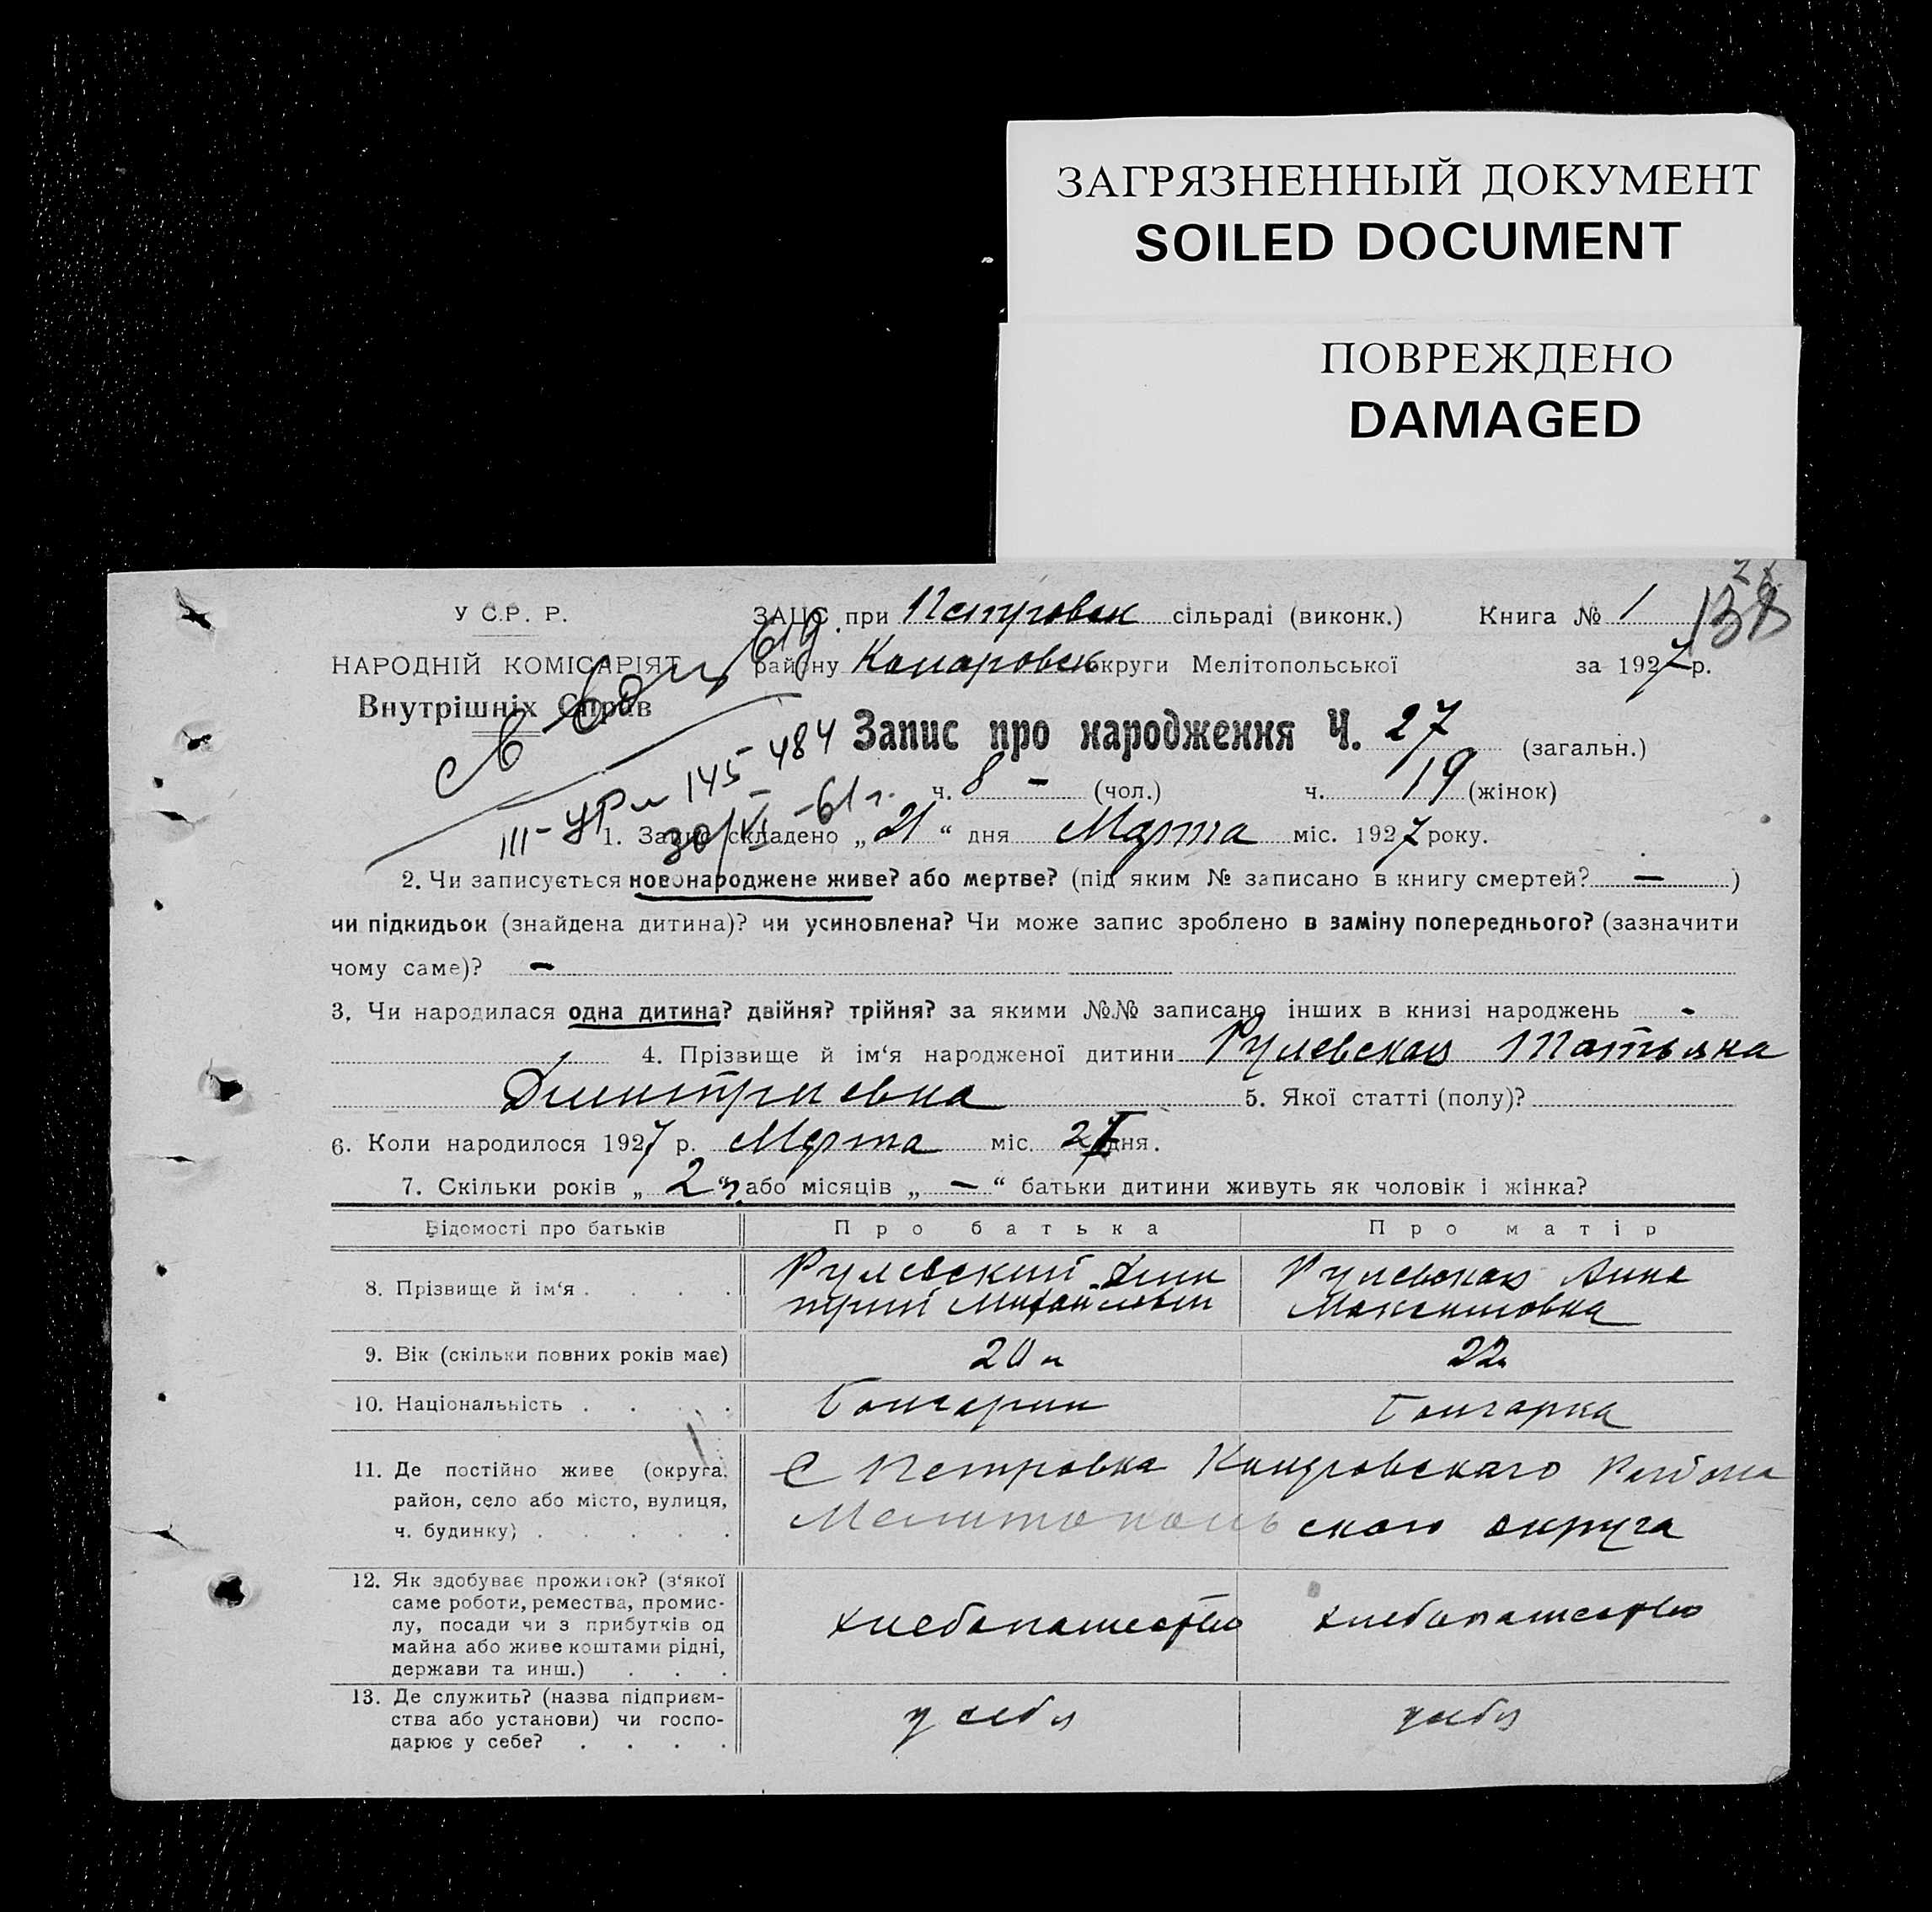 ЗАГРЯЗНЕННЫЙ ДОКУМЕНТ
SOILED DOCUMENT
ПОВРЕЖДЕНО
DAMAGED
У С.Р. Р.
НАРОДНІЙ КОМІСАРІЯТ
Внутрішніх Справ
ЗАЦС при Петровск сільраді (виконк.) Книга № 1
району округи Мелітопольської за 1927 р.
Запис про народження Ч. 27 (загальн.)
145-484
ч. 8 – (чол.) ч. 19 (жінок)
30/VI -61 г.
1. Запис складено „21“ дня Марта міс. 1927 року.
2. Чи записується новонароджене живе? або мертве? (під яким № записано в книгу смертей? – )
чи підкидьок (знайдена дитина)? чи усиновлена? Чи може запис зроблено в заміну попереднього? (зазначити
чому саме)? –
3. Чи народилася одна дитина? двійня? трійня? за якими №№ записано інших в книзі народжень -
4. Прізвище й ім‘я народженої дитини Рулевская Татьяна
Димитриевна 5. Якої статті (полу)?
6. Коли народилося 1927 р. Марта міс. дня.
7. Скільки років „ 2 “ або місяців „ – “ батьки дитини живуть як чоловік і жінка?
Відомості про батьків Про батька Про матір
8. Прізвище й ім‘я . . . . Рулевский Дими Рулевская Анна
трий Михайлович Максимовна
9. Вік (скільки повних років має) 20 л 22
10. Національність . . . . Болгарин Болгарка
11. Де постійно живе (округа, С Петровка Района
район, село або місто, вулиця,
ч. будинку) . . . . . Мелитопольского округа
12. Як здобуває прожиток? (з‘якої
саме роботи, ремества, промис-
лу, посади чи з прибутків од хлебопашество хлебопашество
майна або живе коштами рідні,
держави та инш.) . . .
13. Де служить? (назва підприєм-
ства або установи) чи госпо- у себя у себя
дарює у себе? . . . .